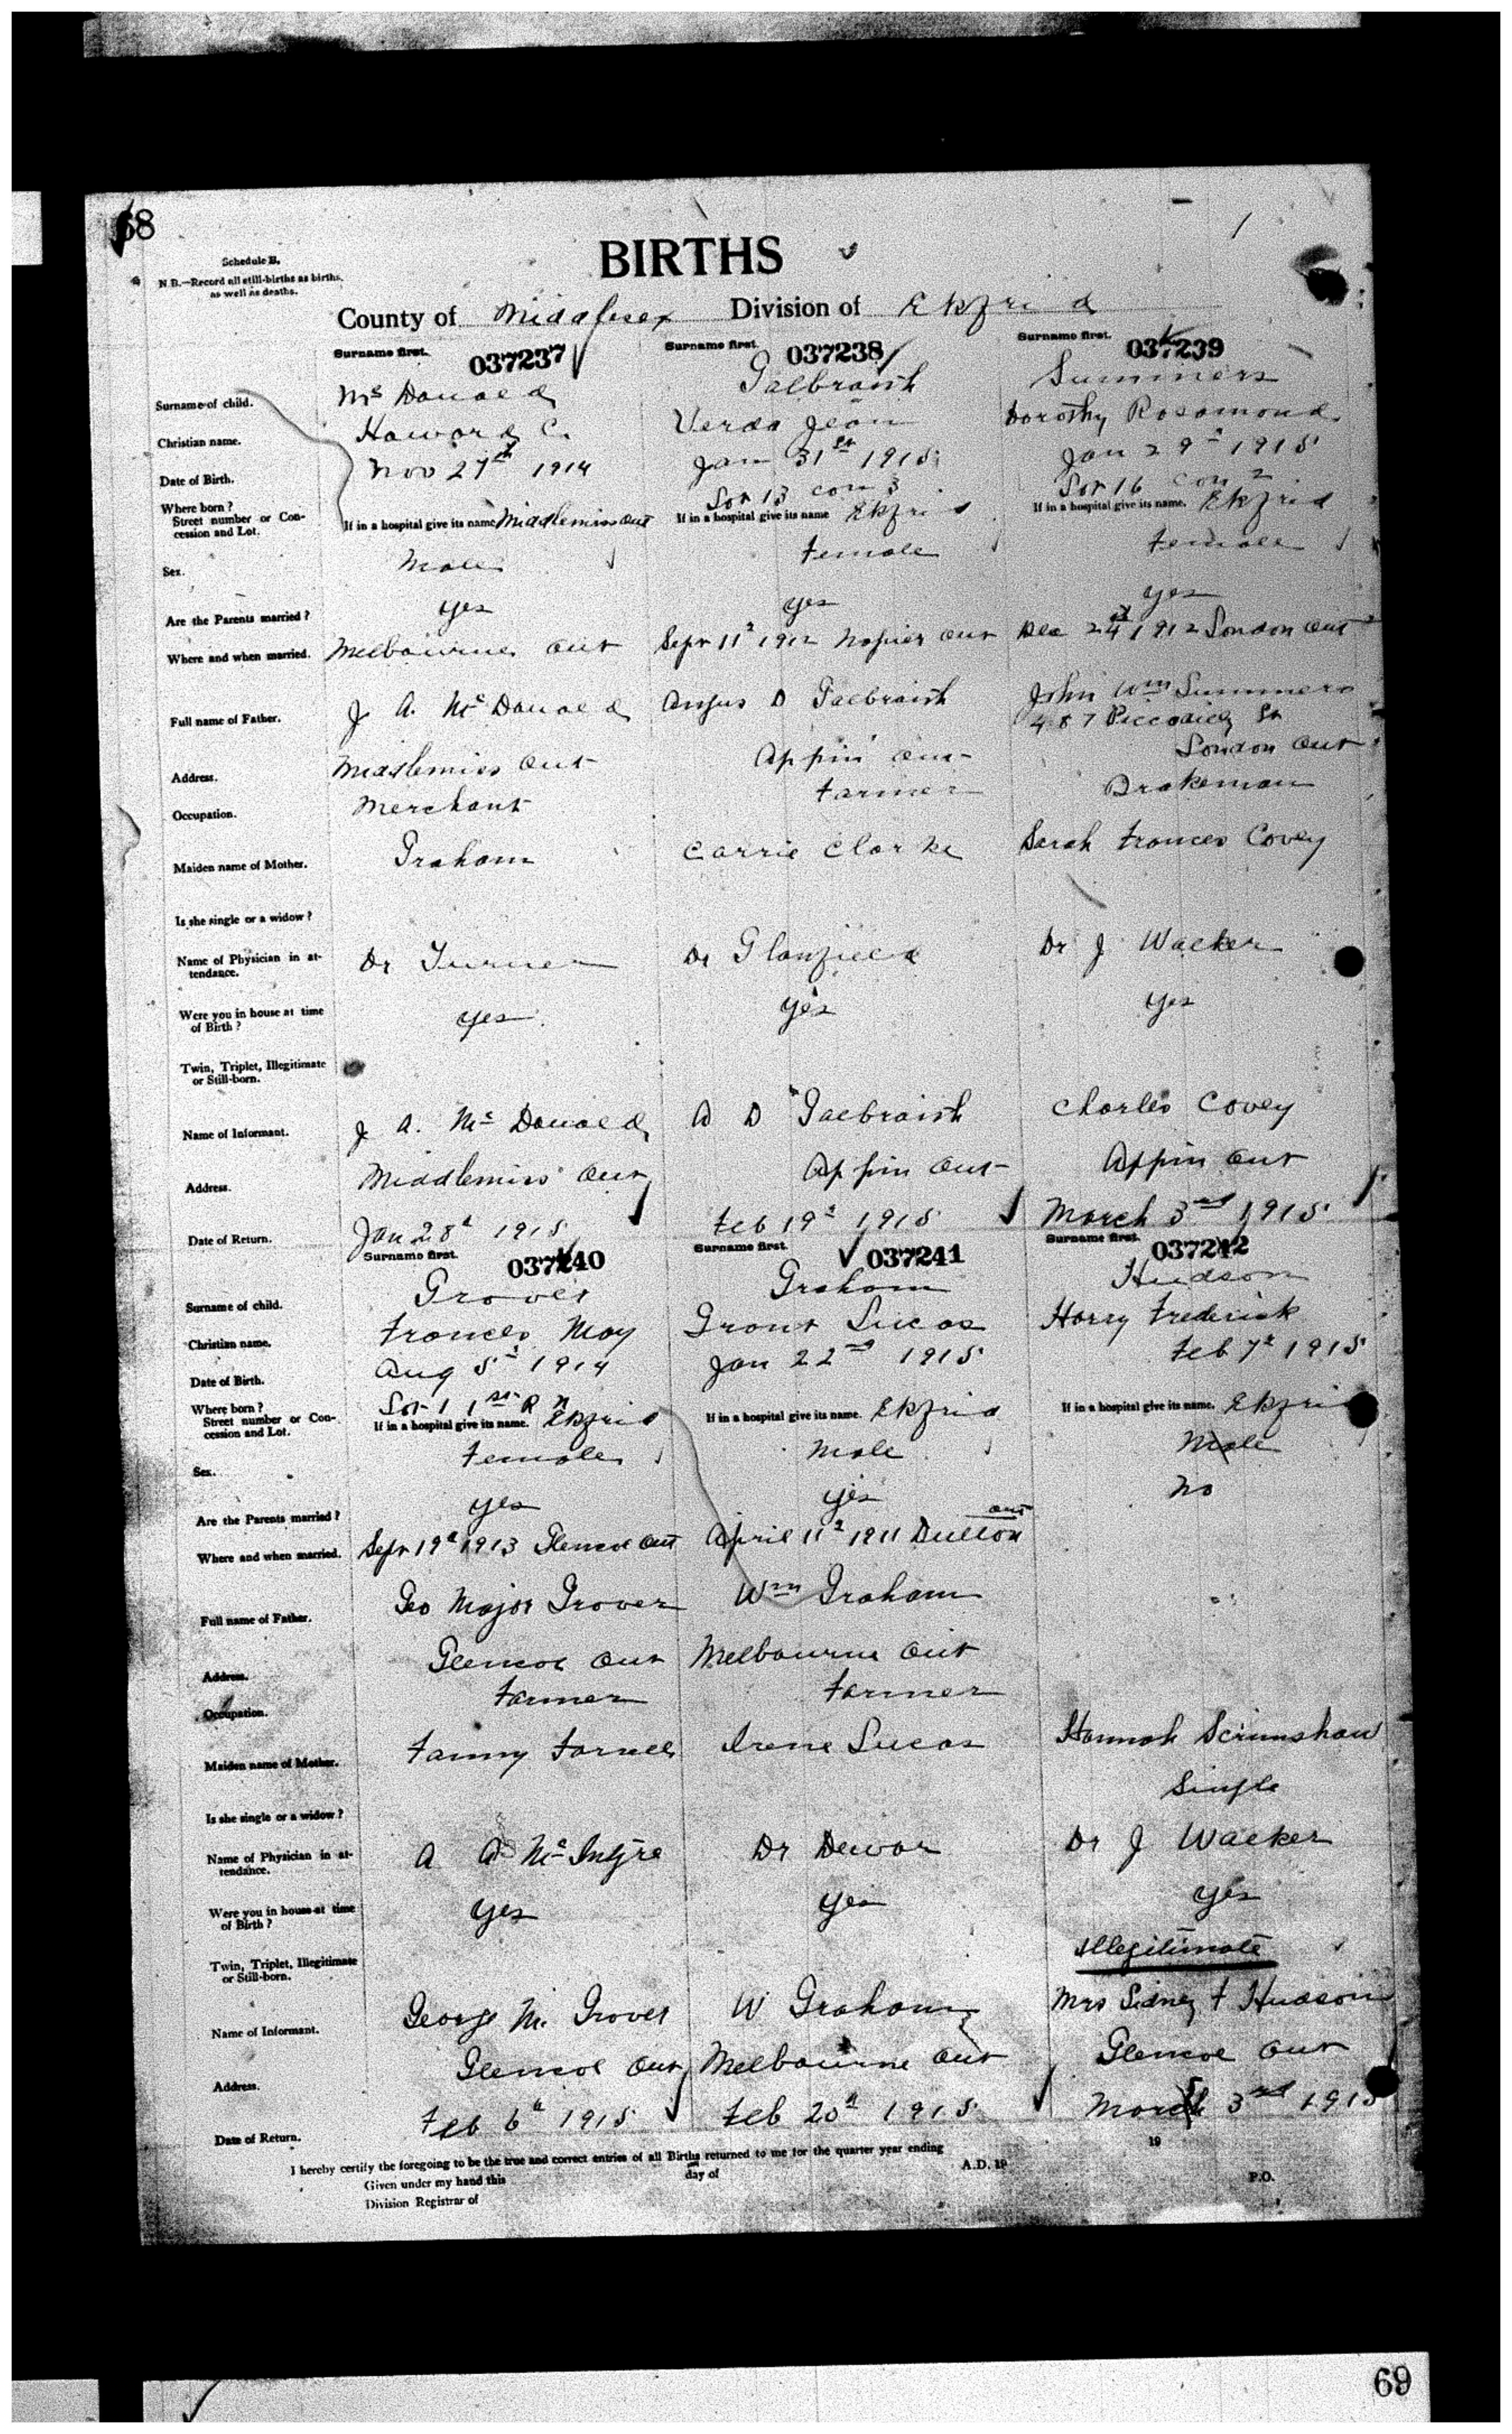 68
Schedule B.
N.B.—Record all still-births as births, as well as deaths.
BIRTHS
County of Middlesex Division of Ekfrid
Surname first. 037237 Surname first. 037238 Surname first. 037239
Surname of child. Mc Donald Galbraith Summers
Christian name. Howard C. Verda Jean Dorothy Rosamond
Date of Birth. Nov 27th 1914 Jan 31st 1915 Jan 29th 1915
Where born? Lot 13 con 3 Lot 16 con 2
Street number or Concession and Lot. If in a hospital give its name. Middlemiss Ont If in a hospital give its name. Ekfrid If in a hospital give its name. Ekfrid
Sex. Male Female Female
Are the Parents married? yes yes yes
Where and when married. Melbourne Ont Sept 11th 1912 Napier Ont Dec 24th 1912 London Ont
Full name of Father. J. A. Mc Donald Angus D Galbraith John Wm Summers
487 Piccadily St
Address. Middlemiss Ont Appin Ont London Ont
Occupation. Merchant Farmer Brakeman
Maiden name of Mother. Graham Carrie Clarke Sarah Frances Covey
Is she single or a widow?
Name of Physician in attendance. Dr Turner Dr Glanfield Dr J Walker
Were you in house at time of Birth? yes yes yes
Twin, Triplet, Illegitimate or Still-born.
Name of Informant. J A. Mc Donald A D Galbraith Charles Covey
Address. Middlemiss Ont Appin Ont Appin Ont
Date of Return. Jan 28th 1915 Feb 19th 1915 March 3rd 1915
Surname first. 037240 Surname first. 037241 Surname first. 037242
Surname of child. Grover Graham Hudson
Christian name. Frances May Grant Lucas Harry Frederick
Date of Birth. Aug 5th 1914 Jan 22nd 1915 Feb 7th 1915
Where born? Lot 1 1st R N
Street number or Concession and Lot. If in a hospital give its name. Ekfrid If in a hospital give its name. Ekfrid If in a hospital give its name. Ekfrid
Sex. Female Male Male
Are the Parents married? yes yes no
Where and when married. Sept 19th 1913 Glencoe Ont April 11th 1911 Dutton Ont
Full name of Father. Geo Major Grover Wm Graham
Address. Glencoe Ont Melbourne Ont
Occupation. Farmer Farmer
Maiden name of Mother. Fanny Farnell Irene Lucas Hannah Scrimshaw
Is she single or a widow? Single
Name of Physician in attendance. A A McIntyre Dr Dewar Dr J Walker
Were you in house at time of Birth? yes yes yes
Twin, Triplet, Illegitimate or Still-born. Illegitimate
Name of Informant. George M. Grover W Graham Mrs Sidney F Hudson
Address. Glencoe Ont Melbourne Ont Glencoe Ont
Date of Return. Feb 6th 1915 Feb 20th 1915 March 3rd 1915
I hereby certify the foregoing to be the true and correct entries of all Births returned to me for the quarter year ending 19
Given under my hand this day of A.D. 19
Division Registrar of P.O.
69